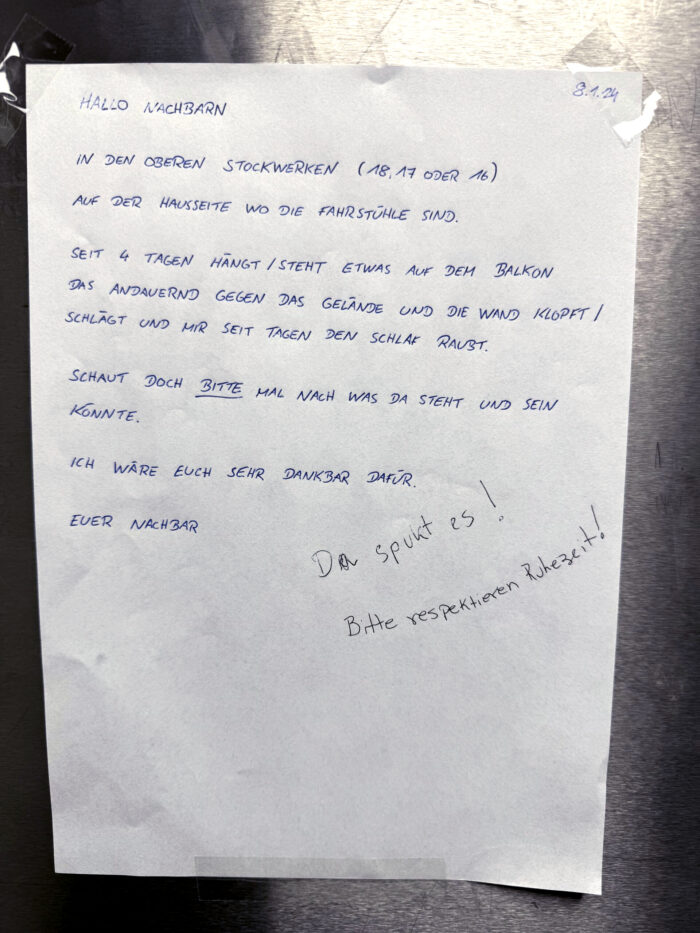 8.1.24
HALLO NACHBARN
IN DEN OBEREN STOCKWERKEN (18, 17 ODER 16)
AUF DER HAUSSEITE WO DIE FAHRSTÜHLE SIND.
SEIT 4 TAGEN HÄNGT / STEHT ETWAS AUF DEM BALKON
DAS ANDAUERND GEGEN DAS GELÄNDE UND DIE WAND KLOPFT /
SCHLÄGT UND MIR SEIT TAGEN DEN SCHLAF RAUBT.
SCHAUT DOCH BITTE MAL NACH WAS DA STEHT UND SEIN
KÖNNTE.
ICH WÄRE EUCH SEHR DANKBAR DAFÜR.
EUER NACHBAR
Da spukt es!
Bitte respektieren Ruhezeit!